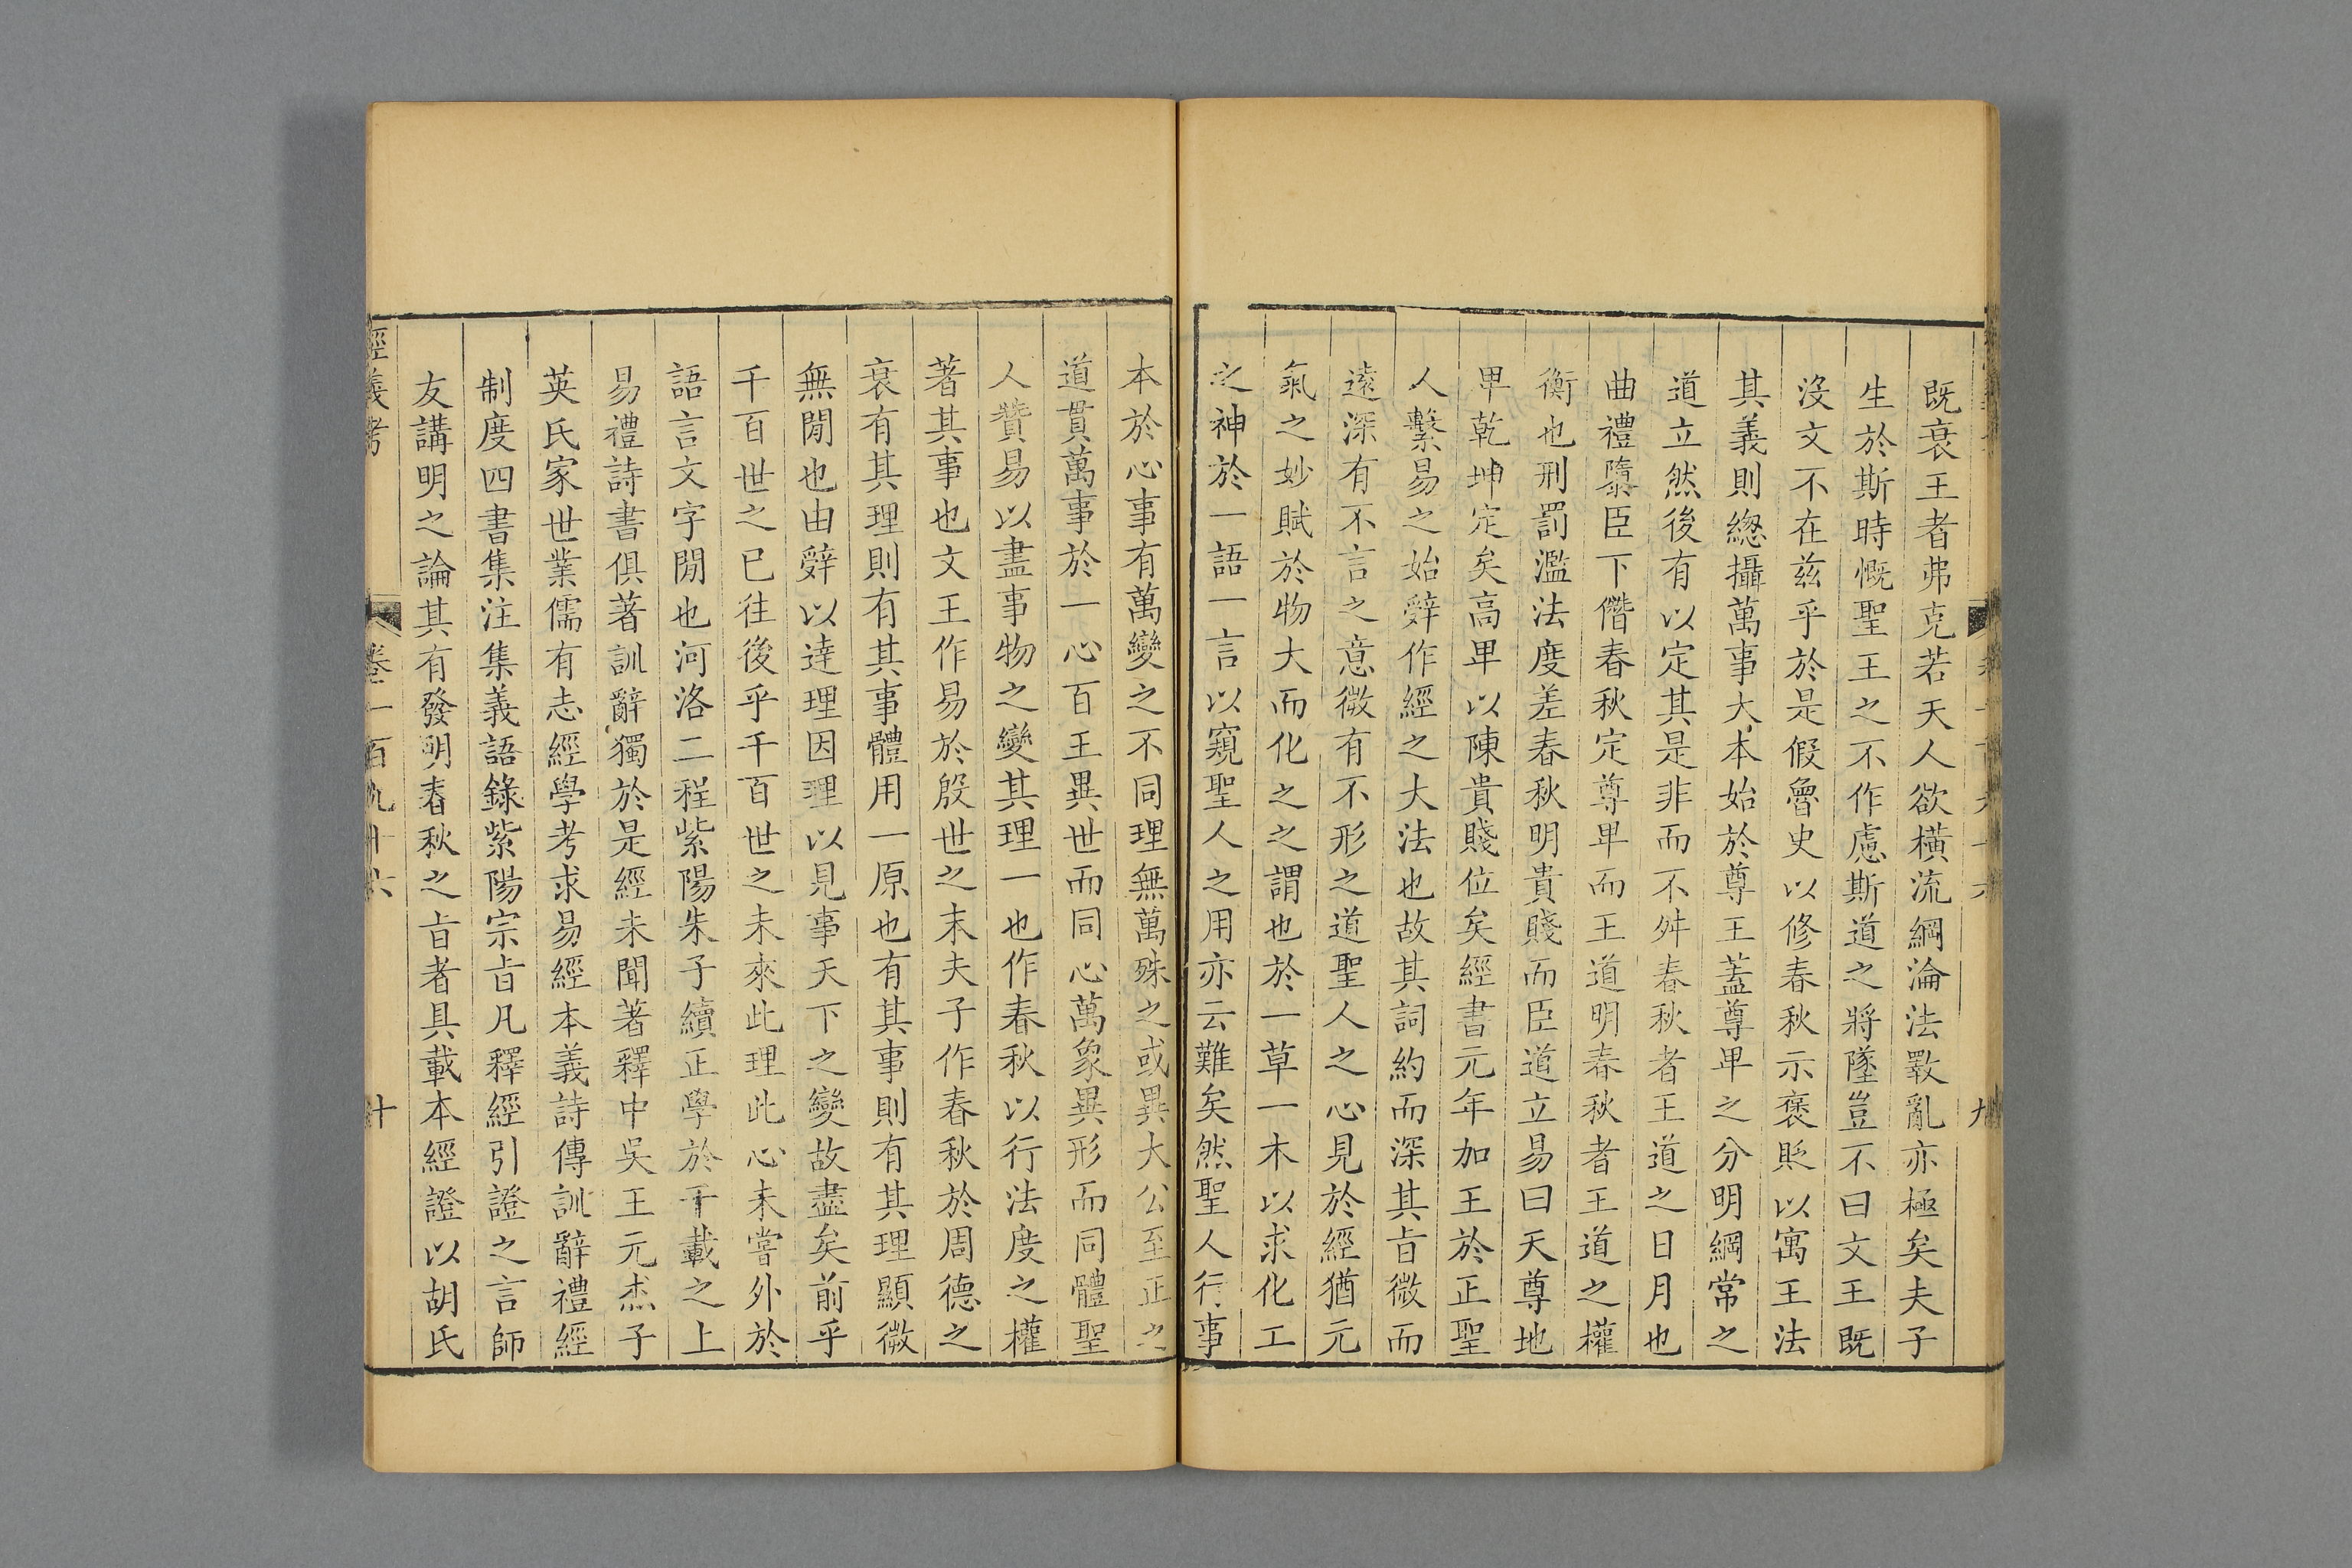 既衰王者弗克若天人欲橫流綱淪法斁亂亦極矣夫子
生於斯時慨聖王之不作慮斯道之將墜豈不曰文王既
沒文不在茲乎於是假魯史以修春秋示褒貶以寓王法
其義則緫攝萬事大本始於尊王蓋尊卑之分明綱常之
道立然後有以定其是非而不舛春秋者王道之日月也
曲禮隳臣下僭春秋定尊卑而王道明春秋者王道之權
衡也刑罰濫法度差春秋明貴賤而臣道立易曰天尊地
卑乾坤定矣高卑以陳貴賤位矣經書元年加王於正聖
人繫易之始辤作經之大法也故其詞約而深其㫖微而
遠深有不言之意微有不形之道聖人之心見於經猶元
氣之妙賦於物大而化之之謂也於一草一木以求化工
之神於一語一言以窺聖人之用亦云難矣然聖人行事
本於心事有萬變之不同理無萬殊之或異大公至正之
道貫萬事於一心百王異世而同心萬象異形而同體聖
人贊易以盡事物之變其理一也作春秋以行法度之權
著其事也文王作易於殷世之末夫子作春秋於周德之
衰有其理則有其事體用一原也有其事則有其理顯微
無閒也由辤以達理因理以見事天下之變故盡矣前乎
千百世之已往後乎千百世之未來此理此心未嘗外於
語言文字閒也河洛二程紫陽朱子續正學於千載之上
易禮詩書俱著訓辭獨於是經未聞著釋中吳王元杰子
英氏家世業儒有志經學考求易經本義詩傳訓辭禮經
制度四書集注集義語錄紫陽宗㫖凡釋經引證之言師
友講明之論其有發明春秋之㫖者具載本經證以胡氏
經義考 卷一百九十六 十